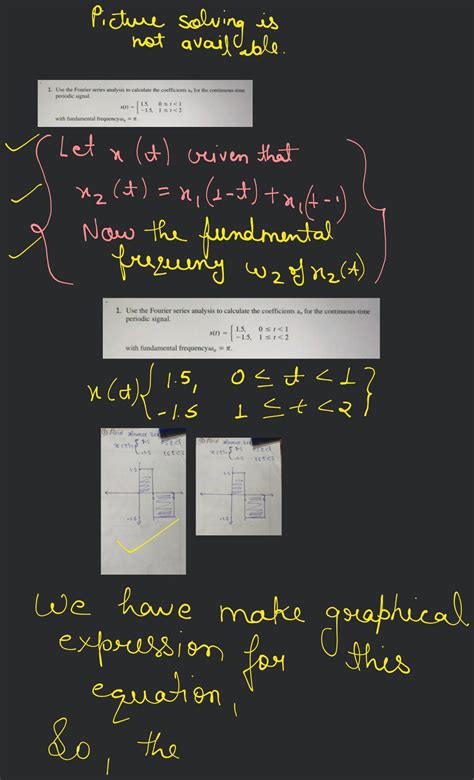 Picture solving is
not available.
1. Use the Fourier series analysis to calculate the coefficients aₖ for the continuous-time
periodic signal.
x(t) = { 1.5, 0 ≤ t < 1
-1.5, 1 ≤ t < 2
with fundamental frequency ω₀ = π.
Let x (t) given that
x₂ (t) = x₁ (1-t) + x₁ (t-1)
Now the fundmental
frequeny ω₂ of x₂ (t)
1. Use the Fourier series analysis to calculate the coefficients aₖ for the continuous-time
periodic signal.
x(t) = { 1.5, 0 ≤ t < 1
-1.5, 1 ≤ t < 2
with fundamental frequency ω₀ = π.
x (t) { 1.5, 0 ≤ t < 1 }
-1.5 1 ≤ t < 2
We have make graphical
expression for this
equation,
So, the